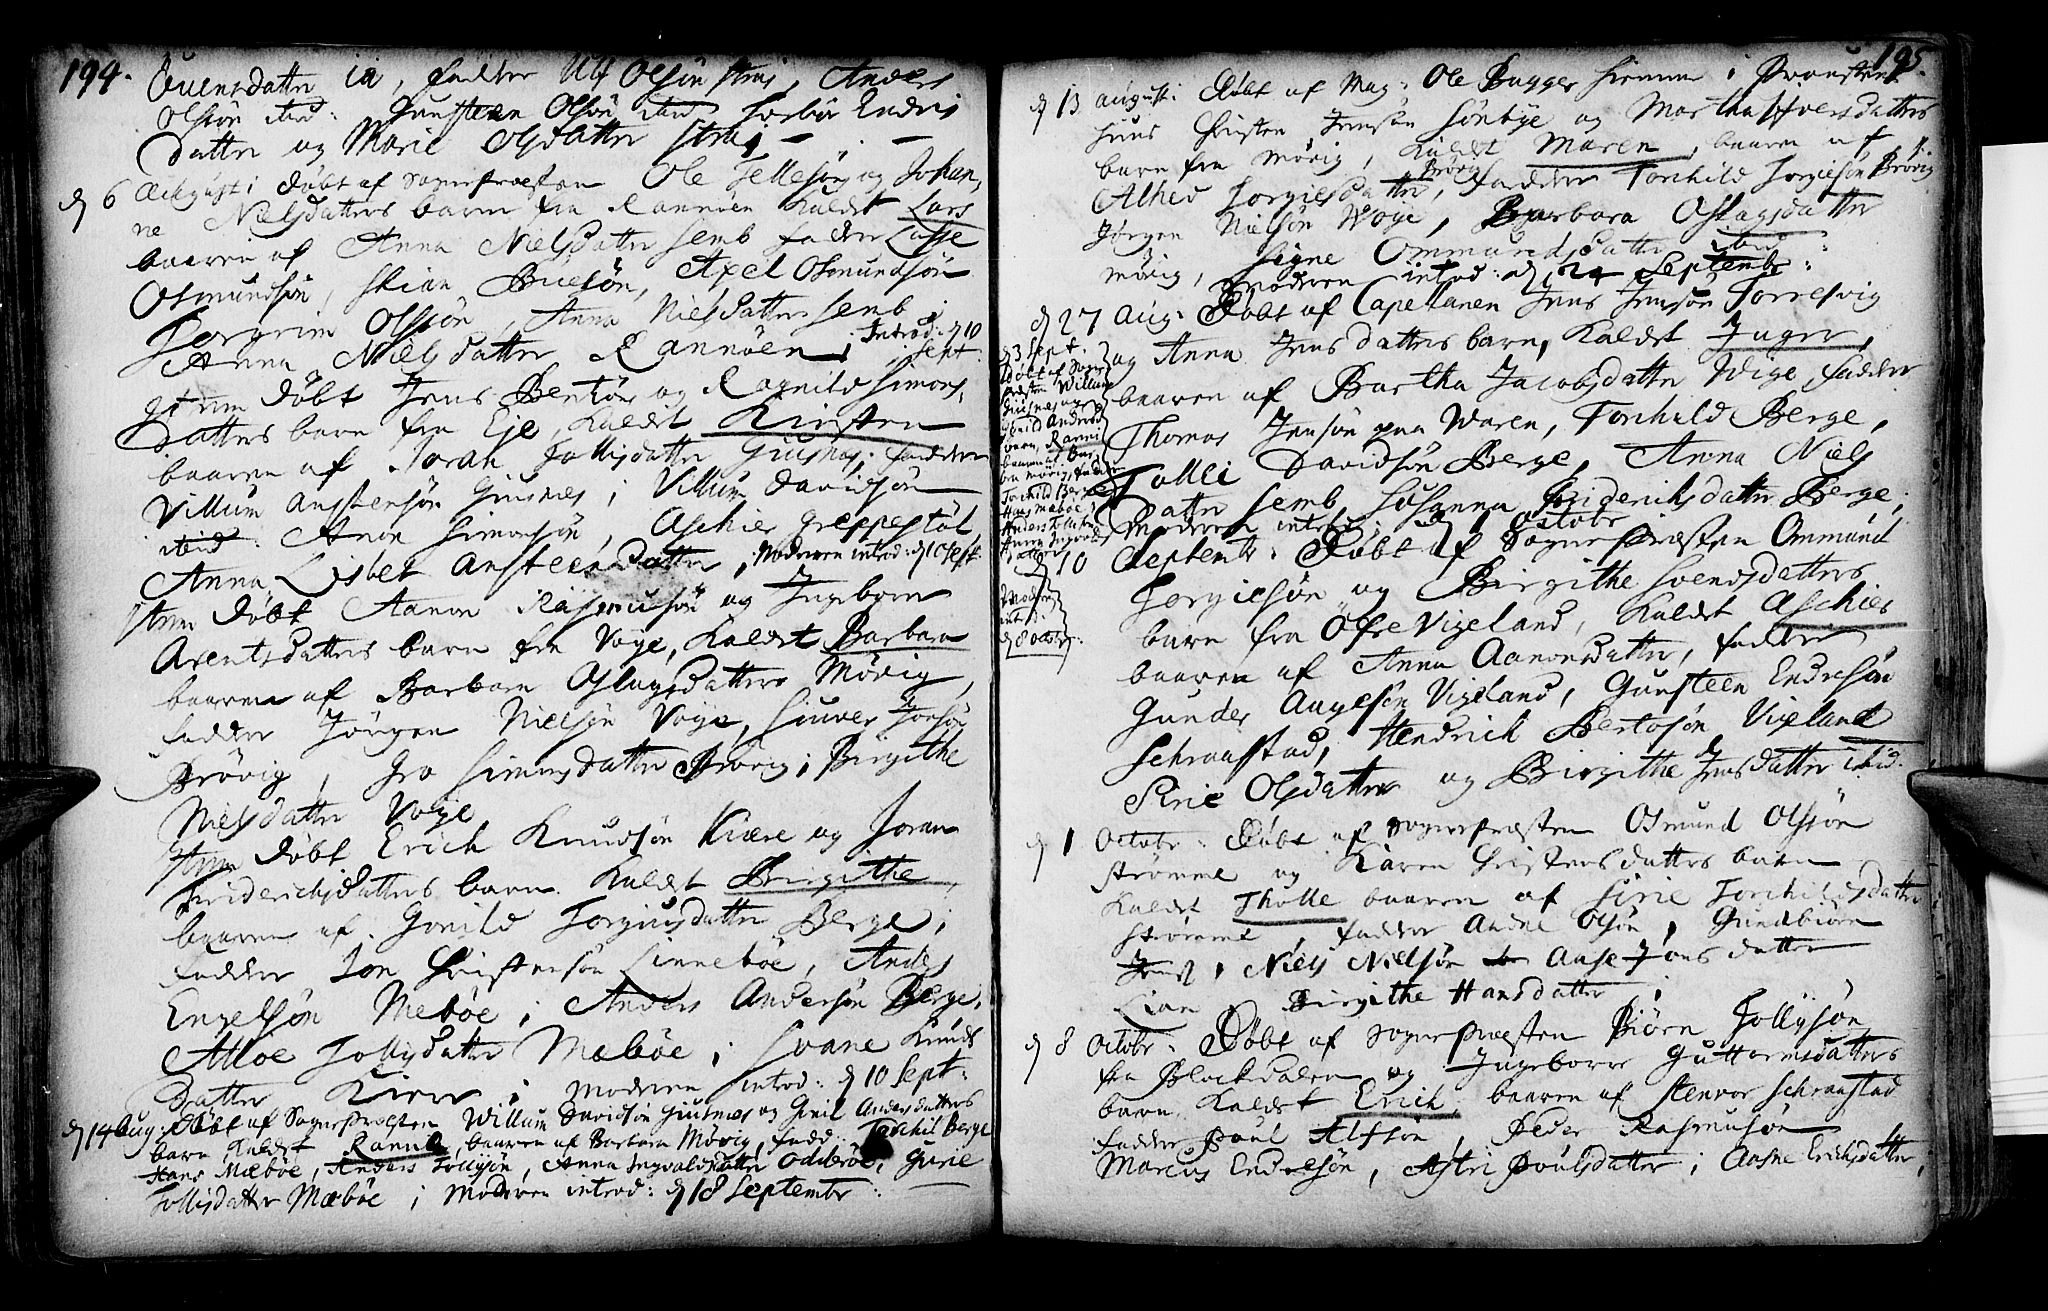 194.
Evensdatter ia, faddre Ulf Olsøn Strai, Anders
Olsøn ibid: Gunsteen Olsøn ibid Torbiør Endris
datter og Marie Olsdatter Strai
d 6 Augusti døbt af Sognepræsten Ole Tellefsøn og Johan-
ne Nielsdatters barn fra Rannøen kaldet Lars
baaren af Anna Nielsdatter Semb fadder Lasse
Osmundsøn, Stian Buesøn, Axel Osmundsøn
Torgrim Olsøn, Anna Nielsdatter Semb
Anna Nielsdatter Rannøen; Introd: d 10 Sept:
Item døbt Jens Bentsøns og Ragnild Simons-
datters barn fra Eje, kaldet Kirsten
baaren af Torah Follisdatter Giusnes; faddere
Villum Anstensøn Giusnes; Villum Davidsøn
ibid: Anon Simonsøn, Aschier Greppestøl
Anna Lisbet Ansteensdatter, Moderen introd: d 10 Sept:
Item døbt Aanon Rasmusøn og Ingebore
Arentsdatters barn fra Voye, kaldet Barbara
baaren af Barbara Oslagsdatter Møvig,
faddre Jørgen Nielsøn Voye, Siuver Jonsøn
Brøvig, Gro Simonsdatter Brøvig; Birgithe
Nielsdatter Voye
Item døbt Erich Knudsøn Kiære og Joran
Friderichsdatters barn kaldet Birgithe,
baaren af Gonild Torgiusdatter Berge;
faddre Jon Christensøn Linnebøe, Anders
Engelsøn Mebøe; Anders Andersøn Berge,
Alloe Follisdatter Mæbøe; Svane Knuds
datter Kiære; Moderen introd: d 10 Sept:
d 14 Aug: Døbt af Sognepræsten Willum Davidsøn Giusnes og Gonil Andersdatters
barn kaldet Rannil, baaren af Barbara Møvig, fadd: Torchil Berge
Hans Mæbøe, Anders Follisøn, Anna Ingvaldsdatter Odderøe, Gurie
Follisdatter Mæbøe; Moderen introd: d 18 Septembr:
195.
d 13 Augusti Døbt af Mag: Ole Bugger hiemme i Prousten
Huus Christen Jensøn Sønbye og Martha Iversdatters
barn fra Møvig, kaldet Maren, baaren af
Alhed Torgiersdatter Brøvig, faddre Torchild Torgiersøn Brøvig
Jørgen Nielsøn Voye, Barbara Oslagsdatter
Møvig, Signe Ommundsdatter ibid:
Moderen introd: d 24 Septembr:
d 27 Aug: Døbt af Capellanen Jens Jensøn Torresvig
og Anna Jensdatters barn, kaldet Inger,
baaren af Bartha Jacobsdatter Wige, faddre
Thomas Jensøn paa Waren, Torchild Berge,
Tollei Davidsøn Berge, Anna Niels
datter Semb, Susanna Friderichsdatter Berge;
Moderen introd: d 1 Octobr
d 3 Sept.
Døbt af Sogne
præsten Willum
Giusnes og
Gonild Andersd
barn, Rannil
baaren af Bar
bra Møvig, fadder
Torchild Berge
Hans Mæbøe
Anders Follisøn
Anna Ingvolds
datter
Moder
introd:
d 8 Octobr:
d 10 Septembr: Døbt af Sognepræsten Ommund
Torgiesøn og Birgithe Svendsdatters
barn fra Øfre Vigeland, kaldet Aschier
baaren af Anna Aanonsdatter, faddre
Gunder Aagesøn Vigeland, Gunsteen Endresøn
Schraastad, Hendrich Bertosøn Vigeland
Sirie Olsdatter og Birgithe Jensdatter ibid:
d 1 Octobr: Døbt af Sognepræsten Osmund Olsøn
Strømme og Karen Christensdatters barn
kaldet Tholle baaren af Sirie Torchildsdatter
Strømme, fadder Andne Olsøn, Gundbiørn
Jensøn, Niels Nielsøn Aase Jonsdatter
Lian Birgithe Hansdatter;
d 8 Octobr: Døbt af Sognepræsten Biørn Follisøn
fra Blechdalen og Ingeborre Guttormsdatters
barn kaldet Erich, baaren af Stenvor Schraastad
fadder Poul Alfsøn, Peder Rasmusøn
Marcus Endresøn, Astri Poulsdatter; Aasne Erichsdatter,